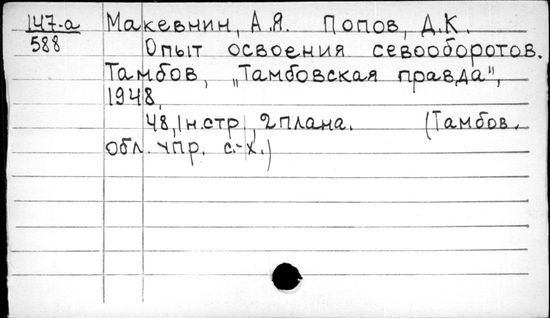 147-а
588
Макевнин, А.Я. Попов, Д.К.
Опыт освоения севооборотов.
Тамбов, „Тамбовская правда",
1948,
48, 1н.стр., 2 плана. (Тамбов.
обл. упр. с.-х.)